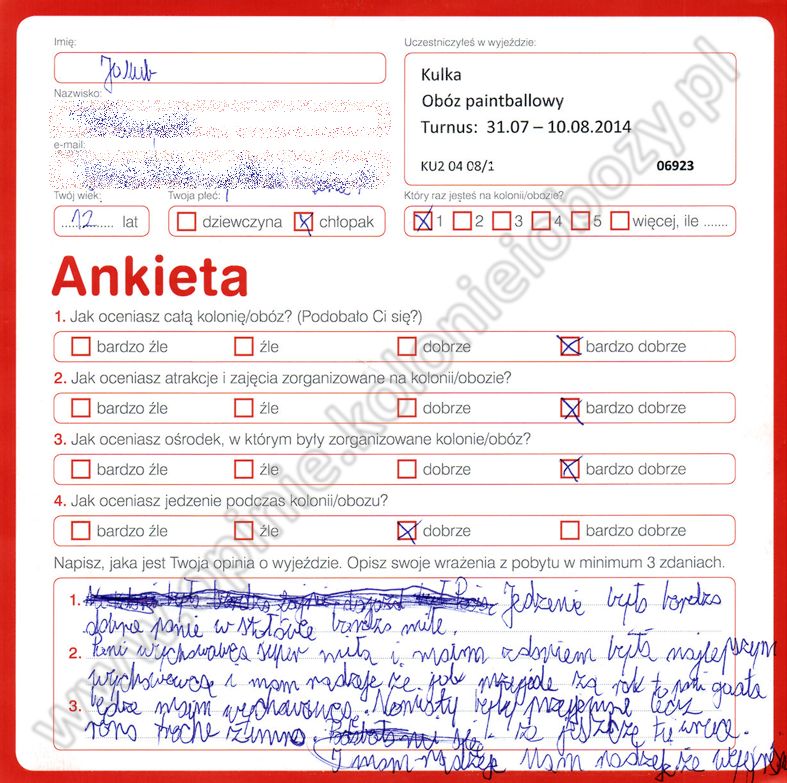 Imię:
Jakub
Uczestniczyłeś w wyjeździe:
Kulka
Obóz paintballowy
Turnus: 31.07 – 10.08.2014
KU2 04 08/1 06923
Nazwisko:
e-mail:
Twój wiek:
12 lat
Twoja płeć:
dziewczyna chłopak
Który raz jesteś na kolonii/obozie?
1 2 3 4 5 więcej, ile .......
Ankieta
1. Jak oceniasz całą kolonię/obóz? (Podobało Ci się?)
bardzo źle źle dobrze bardzo dobrze
2. Jak oceniasz atrakcje i zajęcia zorganizowane na kolonii/obozie?
bardzo źle źle dobrze bardzo dobrze
3. Jak oceniasz ośrodek, w którym były zorganizowane kolonie/obóz?
bardzo źle źle dobrze bardzo dobrze
4. Jak oceniasz jedzenie podczas kolonii/obozu?
bardzo źle źle dobrze bardzo dobrze
Napisz, jaka jest Twoja opinia o wyjeździe. Opisz swoje wrażenia z pobytu w minimum 3 zdaniach.
1. Jedzenie było bardzo
dobre panie w stołówce bardzo miłe.
2. Pani wychowawca super miła i moim zdaniem była najlepszym
wychowawcą i mam nadzieje że jak przyjade za rok to pani
3. będzie moim wychowawcą. Namioty były przyjemne lecz
rano troche zimno.
I mam nadzieje
www.opinie.kolonieiobozy.pl